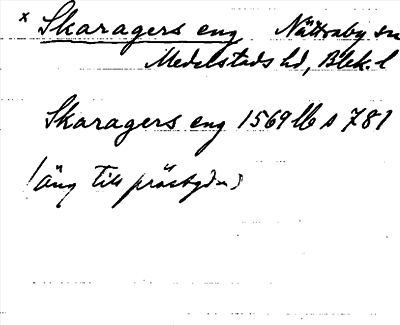 x Skaragers eng Nättraby sn
Medelstads hd, Blek. l
Skaragers eng 1569 lb s 781
(äng till prästgdn)